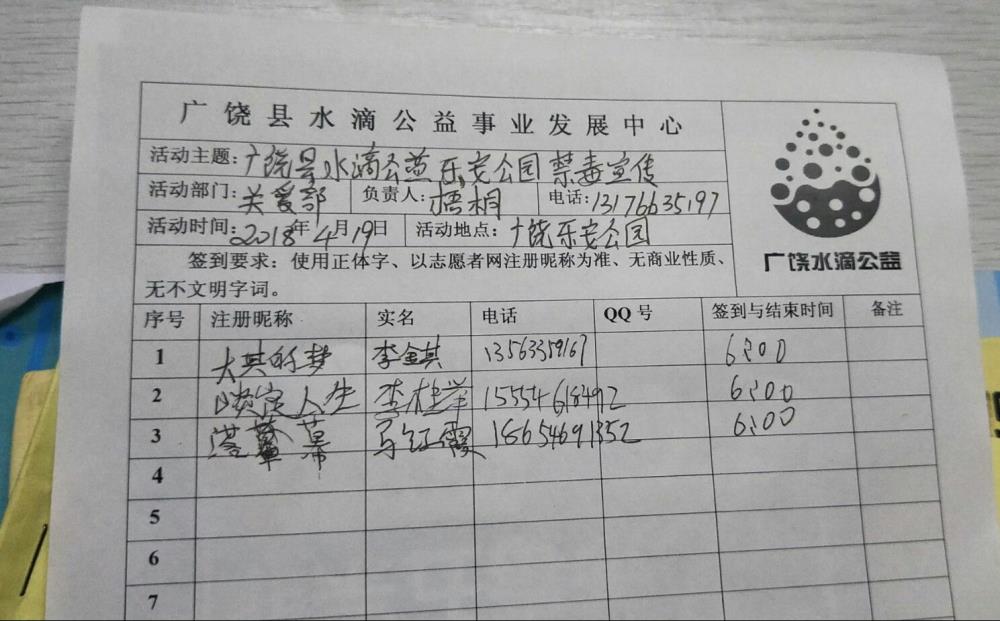 广饶县水滴公益事业发展中心
活动主题:广饶县水滴公益乐安公园禁毒宣传
活动部门:关爱部 负责人:梧桐 电话:13176635197
活动时间:2018年4月19日 活动地点:广饶乐安公园
签到要求:使用正体字、以志愿者网注册昵称为准、无商业性质、
无不文明字词。
广饶水滴公益
序号 注册昵称 实名 电话 QQ号 签到与结束时间 备注
1 大其的梦 李金其 13563359167 6:00
2 淡定人生 李桂举 15554618492 6:00
3 马红霞 18654691352 6:00
4
5
6
7